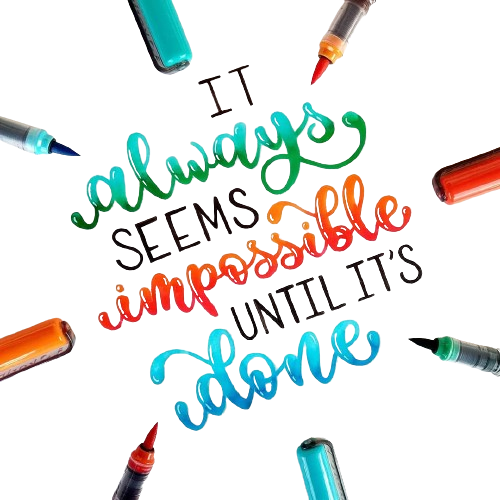 IT
always
SEEMS
impossible
UNTIL IT'S
done